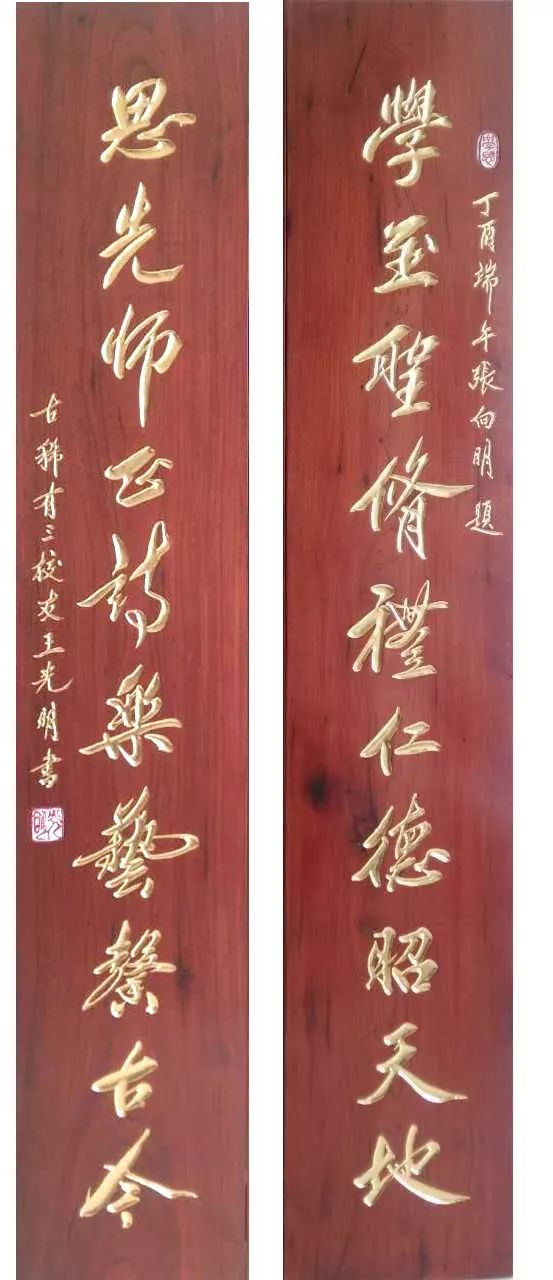 丁酉端午張向明題
學至聖脩禮仁德昭天地
思先师正詩樂藝馨古今
古稀有三校友王光明書